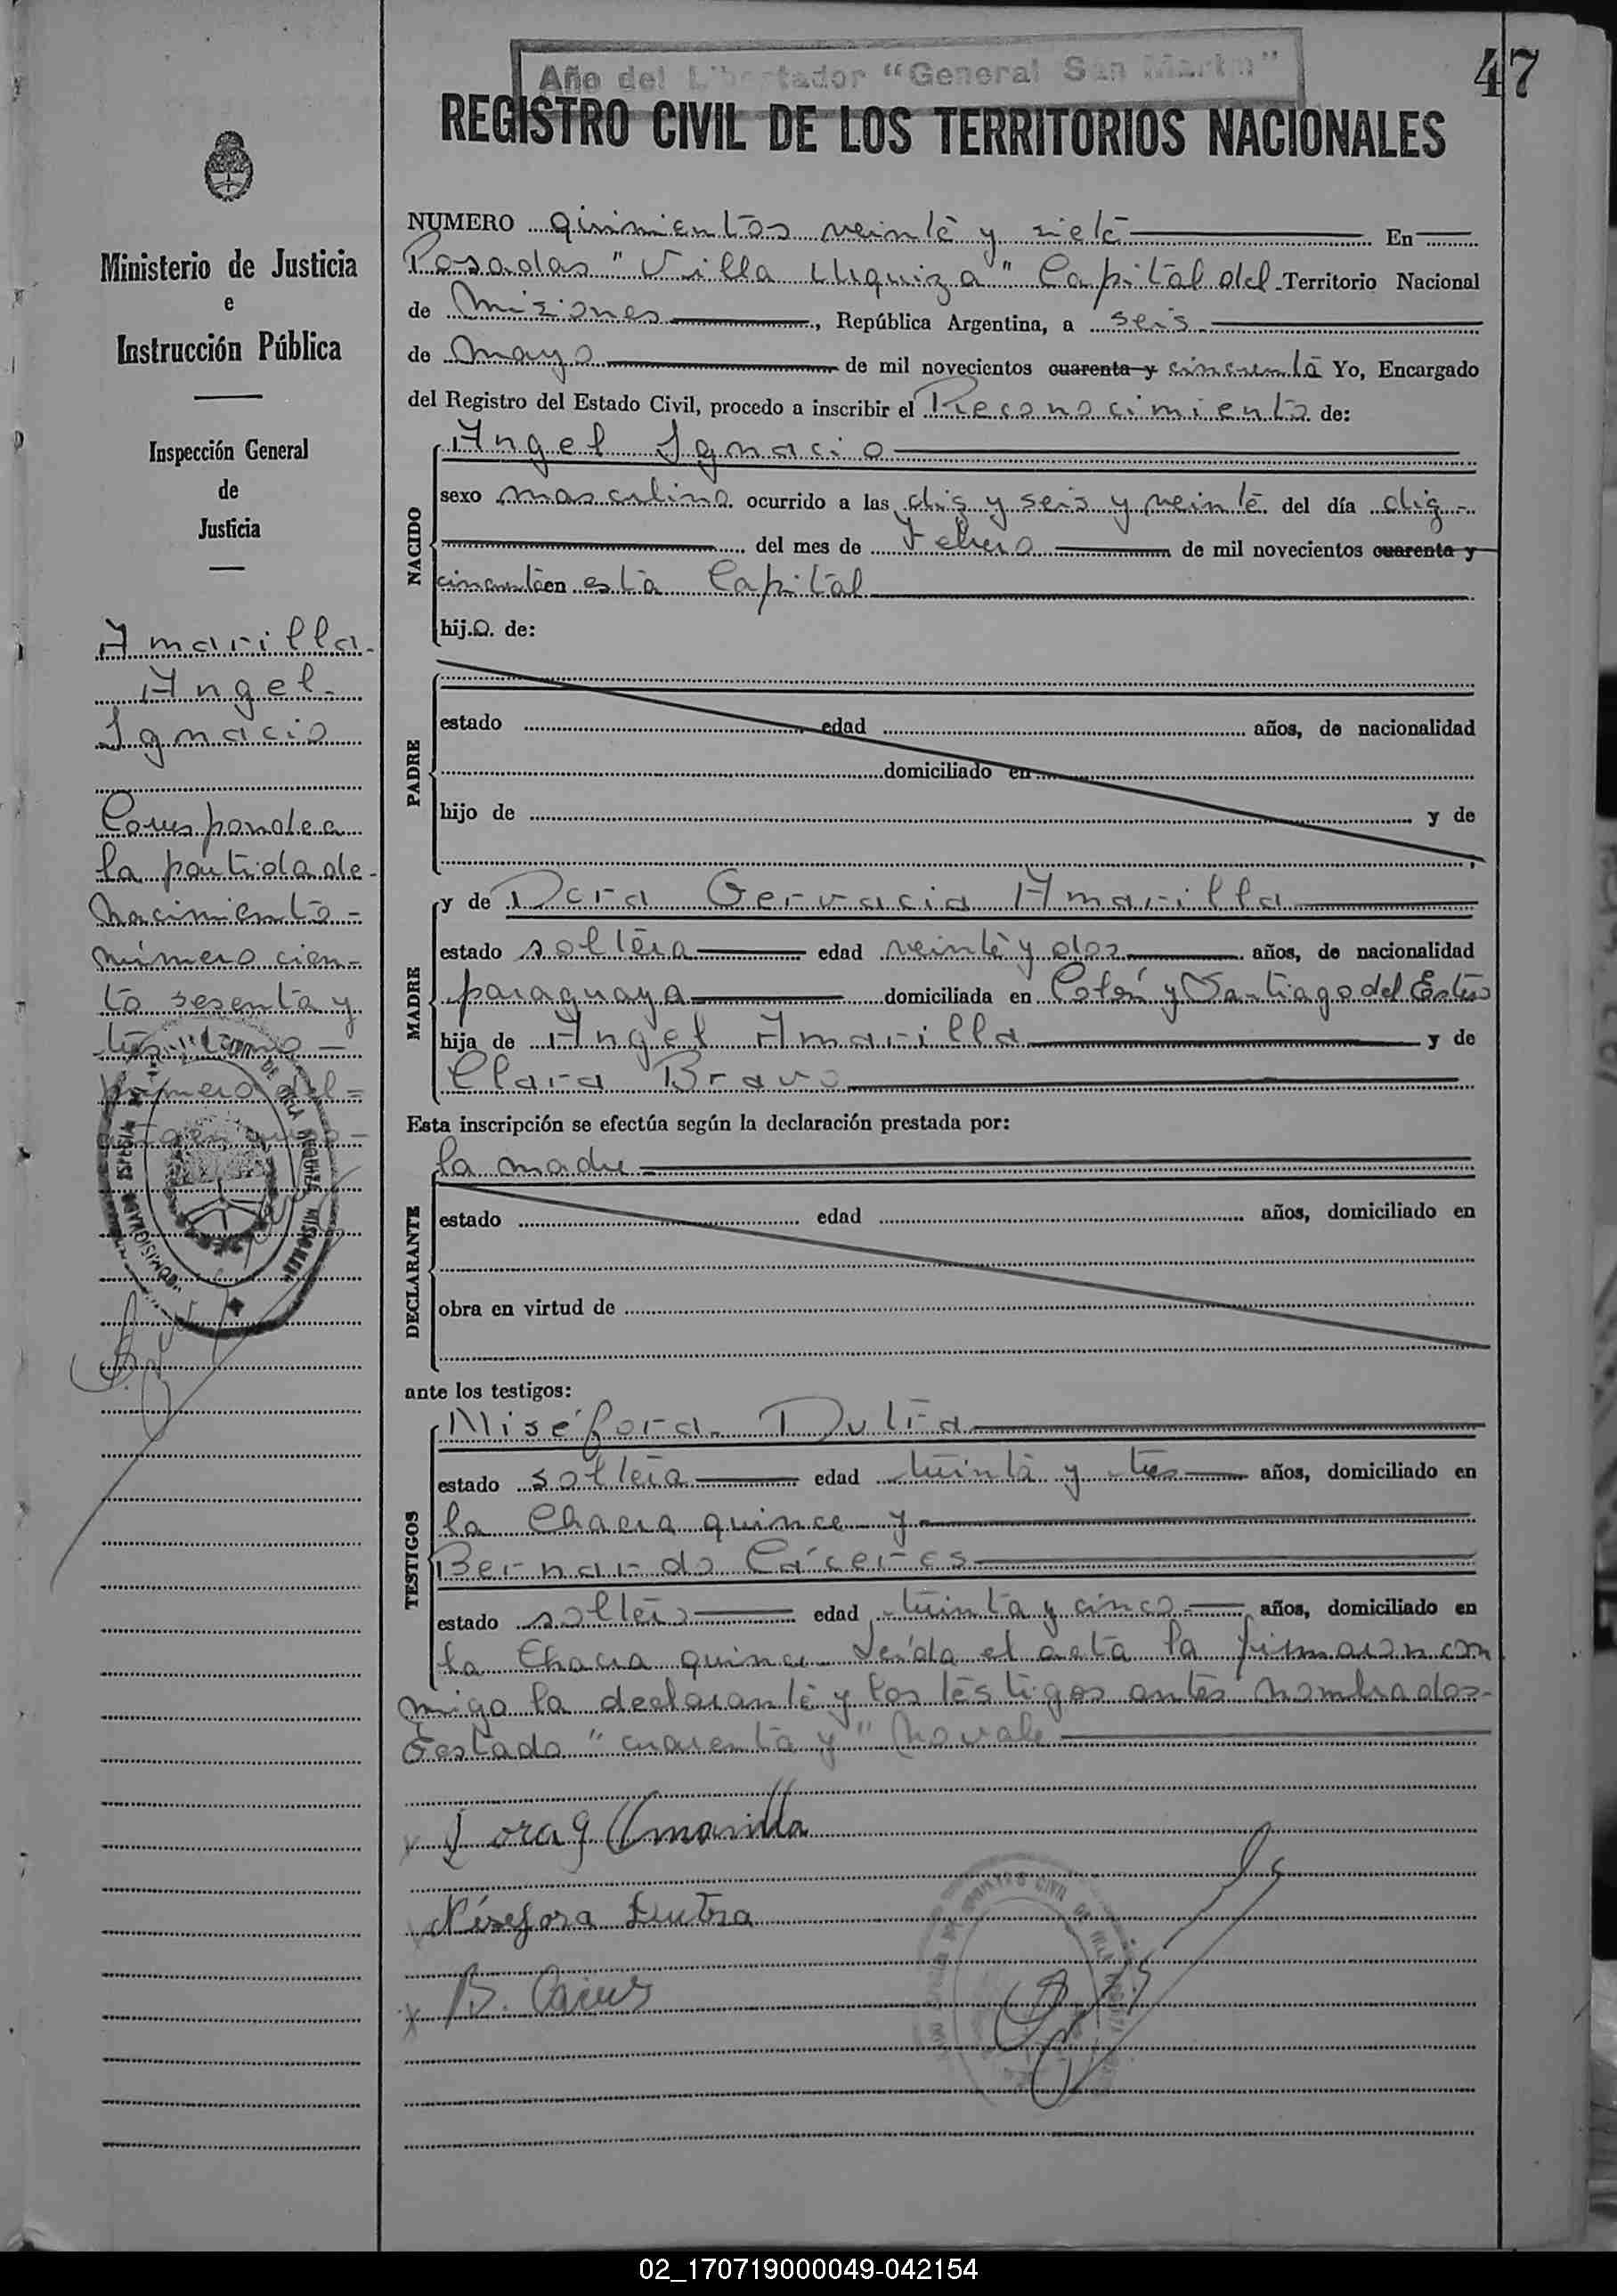 Año del Libertador "General San Martin"
47
REGISTRO CIVIL DE LOS TERRITORIOS NACIONALES
Ministerio de Justicia
e
Instrucción Pública
Inspección General
de
Justicia
Amarilla
Angel
Ignacio
Corresponde a
la partida de
nacimiento
número cien-
to sesenta y
tres tomo
primero del
NUMERO quinientos veinte y siete En
Posadas "Villa Urquiza" Capital del Territorio Nacional
de Misiones, República Argentina, a seis
de mayo de mil novecientos cuarenta y cincuenta Yo, Encargado
del Registro del Estado Civil, procedo a inscribir el Reconocimiento de:
NACIDO
Angel Ignacio
sexo masculino ocurrido a las diz y seis y veinte del día diz
del mes de Febrero de mil novecientos cuarenta y
cincuenta en esta Capital
hijo de:
PADRE
estado edad años, de nacionalidad
domiciliado en
hijo de y de
MADRE
y de Dora Gervacia Amarilla
estado soltera edad veinte y dos años, de nacionalidad
paraguaya domiciliada en Colón y Santiago del Estero
hija de Angel Amarilla y de
Clara Bravo
Esta inscripción se efectúa según la declaración prestada por:
DECLARANTE
la madre
estado edad años, domiciliado en
obra en virtud de
ante los testigos:
TESTIGOS
Niséfora Dutra
estado soltera edad treinta y tres años, domiciliado en
la Chacra quince y
Bernardo Cáceres
estado soltero edad treinta y cinco años, domiciliado en
la Chacra quince Leída el acta la firmaron con
migo la declarante y los testigos antes nombrados-
Testado "cuarenta y" no vale
Dora G Amarilla
Nisefora Dutra
B. Caceres
02_170719000049-042154